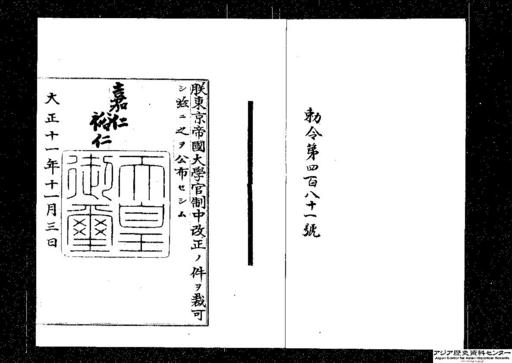 勅令第四百八十一號
朕東京帝國大學官制中改正ノ件ヲ裁可
シ茲ニ之ヲ公布セシム
嘉仁
裕仁
天皇
御璽
大正十一年十一月三日
アジア歴史資料センター
Japan Center for Asian Historical Records